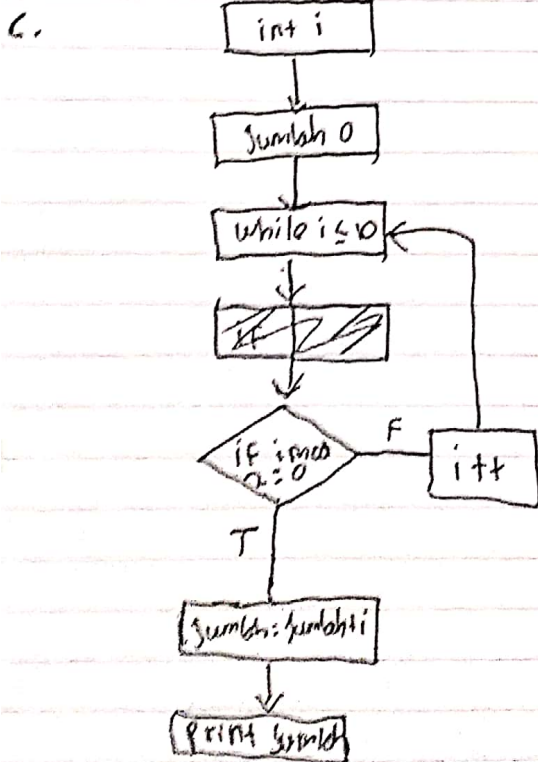 C.
int i
Jumlah 0
while i ≤ 10
if i mod
2 = 0
F
i++
T
Jumlah = Jumlah + i
print Jumlah